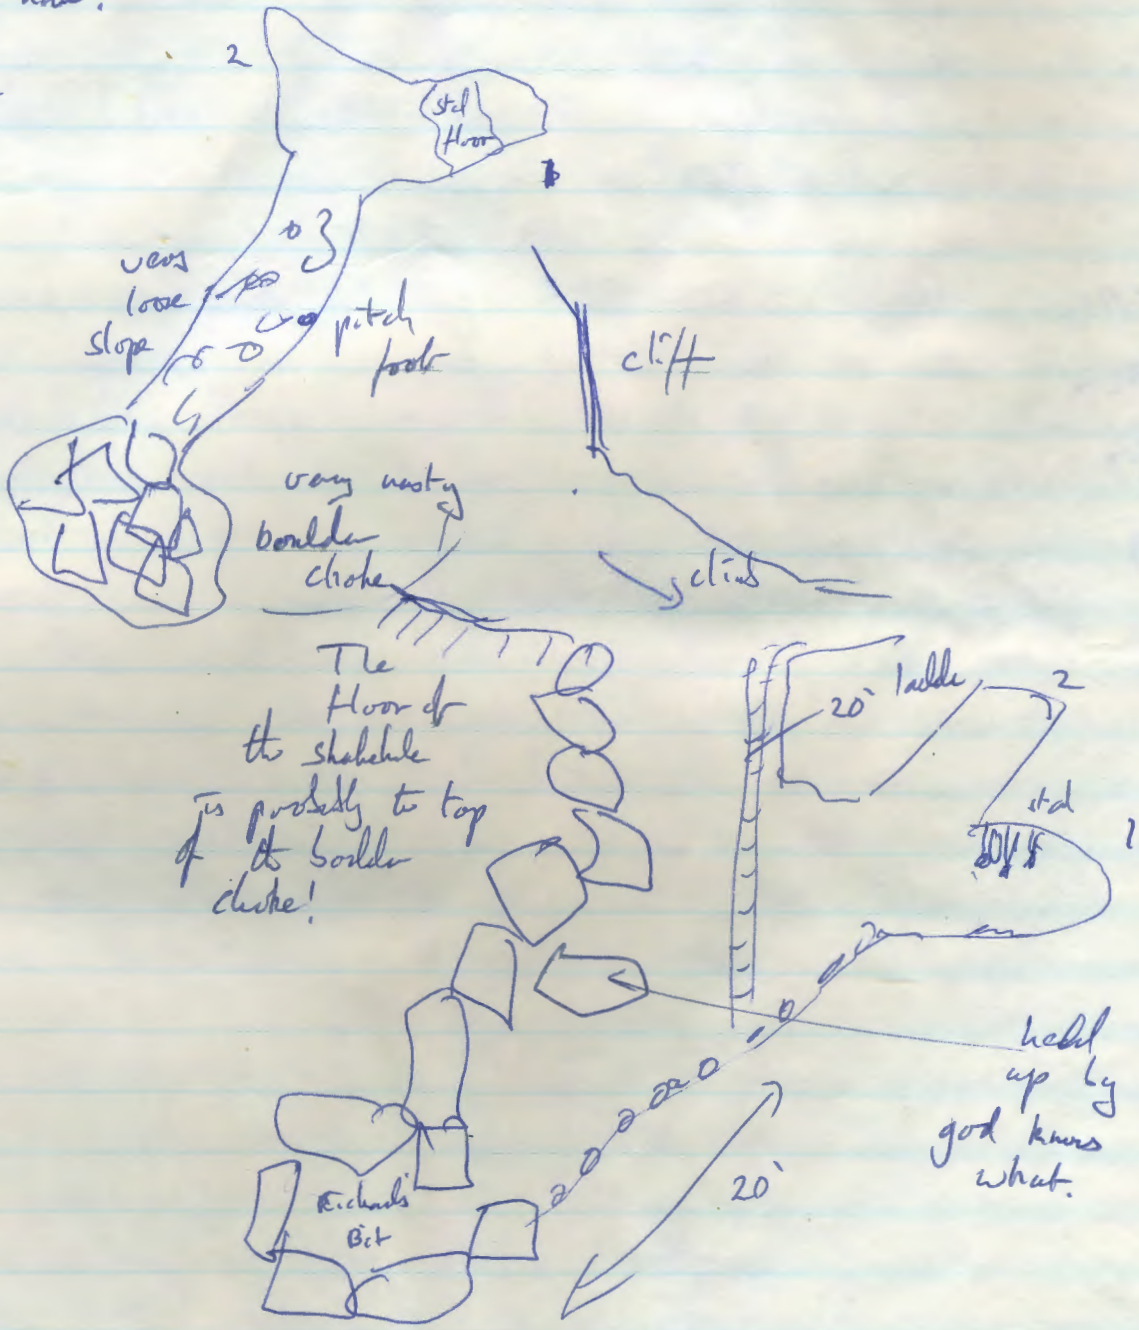 2
stal
floor
very
loose
slope
pitch
foot
cliff
very nasty
boulder
choke
climb
The
floor of
the shakehole
is probably the top
of the boulder
choke!
20' ladder
2
stal
1
held
up by
god knows
what.
20'
Richard's
Bit